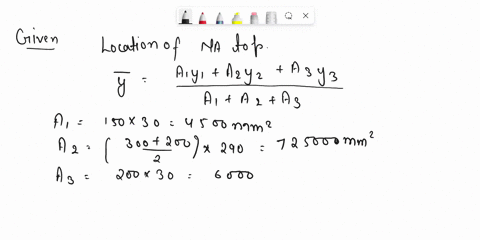 Given Location of NA top.
y̅ = A1y1 + A2y2 + A3y3 / A1 + A2 + A3
A1 = 150 x 30 = 4500 mm²
A2 = (300 + 200 / 2) x 290 = 725000 mm²
A3 = 200 x 30 = 6000